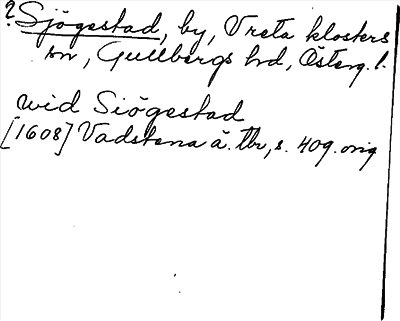 ? Sjögestad, by, Vreta klosters
sn, Gullbergs hd, Österg. l.
wid Siögestad
[1608] Vadstena ä. tbr, s. 409. orig